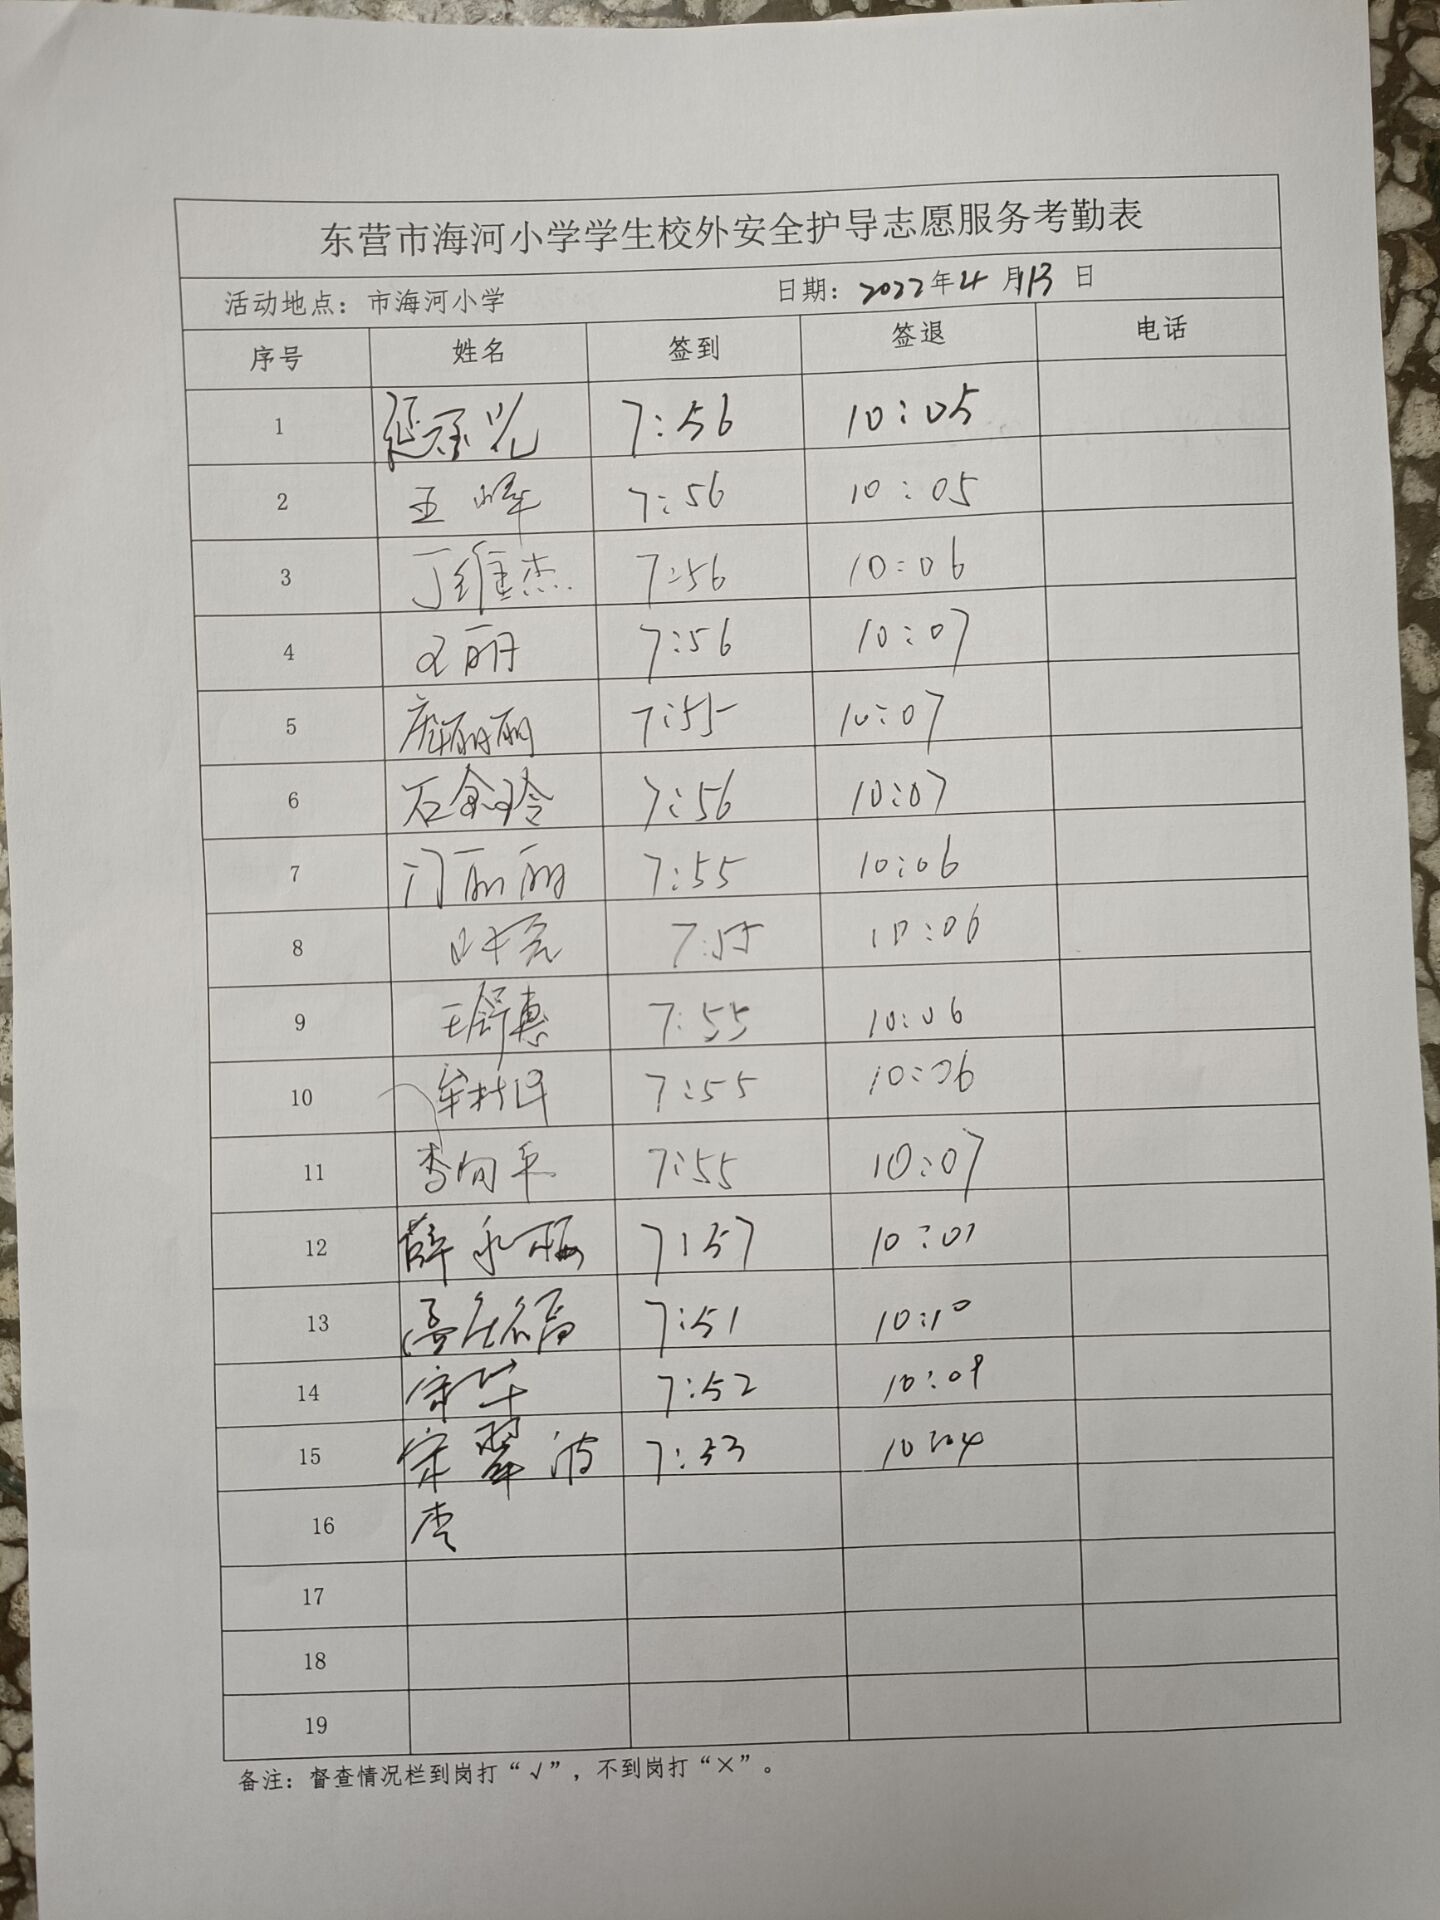 东营市海河小学学生校外安全护导志愿服务考勤表
活动地点：市海河小学 日期：2022年4月13日
序号 姓名 签到 签退 电话
1 7:56 10:05
2 王峰 7:56 10:05
3 丁维杰 7:56 10:06
4 7:56 10:07
5 庞丽丽 7:55 10:07
6 石金玲 7:56 10:07
7 门丽丽 7:55 10:06
8 7:55 10:06
9 王舒惠 7:55 10:06
10 7:55 10:06
11 李向平 7:55 10:07
12 薛永梅 7:57 10:07
13 7:51 10:10
14 宋华 7:52 10:09
15 宋翠波 7:53 10:04
16
17
18
19
备注：督查情况栏到岗打“√”，不到岗打“×”。